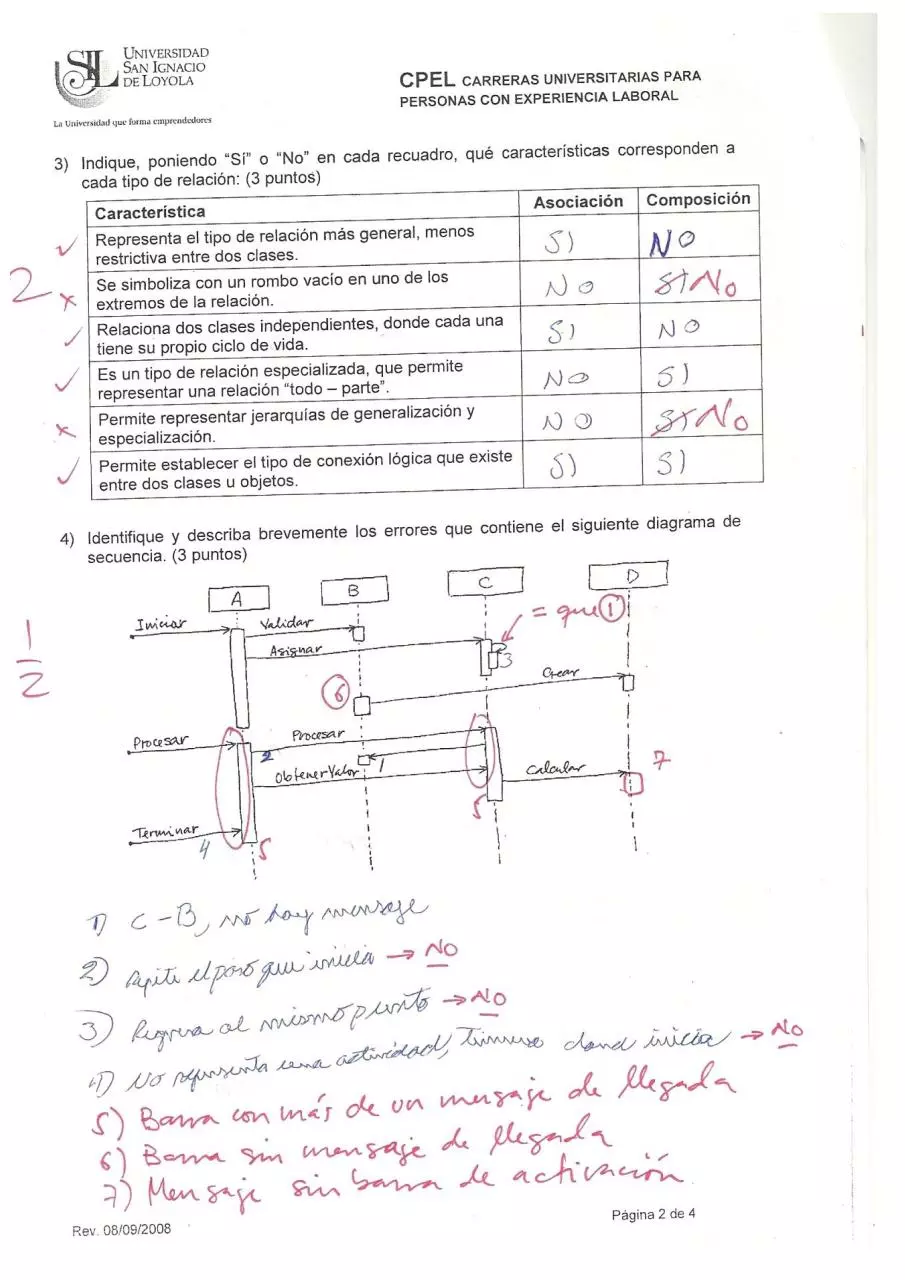 UNIVERSIDAD
SAN IGNACIO
DE LOYOLA
La Universidad que forma emprendedores
CPEL CARRERAS UNIVERSITARIAS PARA
PERSONAS CON EXPERIENCIA LABORAL
3) Indique, poniendo “Sí” o “No” en cada recuadro, qué características corresponden a
cada tipo de relación: (3 puntos)
Característica Asociación Composición
Representa el tipo de relación más general, menos
restrictiva entre dos clases. SI NO
2
Se simboliza con un rombo vacío en uno de los
extremos de la relación. NO SI No
Relaciona dos clases independientes, donde cada una
tiene su propio ciclo de vida. SI NO
Es un tipo de relación especializada, que permite
representar una relación “todo – parte”. NO SI
Permite representar jerarquías de generalización y
especialización. NO SI No
Permite establecer el tipo de conexión lógica que existe
entre dos clases u objetos. SI SI
4) Identifique y describa brevemente los errores que contiene el siguiente diagrama de
secuencia. (3 puntos)
A B C D
Iniciar Validar = que 1
1/2
Asignar 3
6 Crear
Procesar 2 Procesar
1 7
ObtenerValor Calcular
5
Terminar
4 5
1) C-B, no hay mensaje
2) Repite el paso que inicia → No
3) Regresa al mismo punto → No
4) No representa una actividad, donde inicia → No
5) Barra con más de un mensaje de llegada
6) Barra sin mensaje de llegada
7) Mensaje sin barra de activación
Rev. 08/09/2008
Página 2 de 4